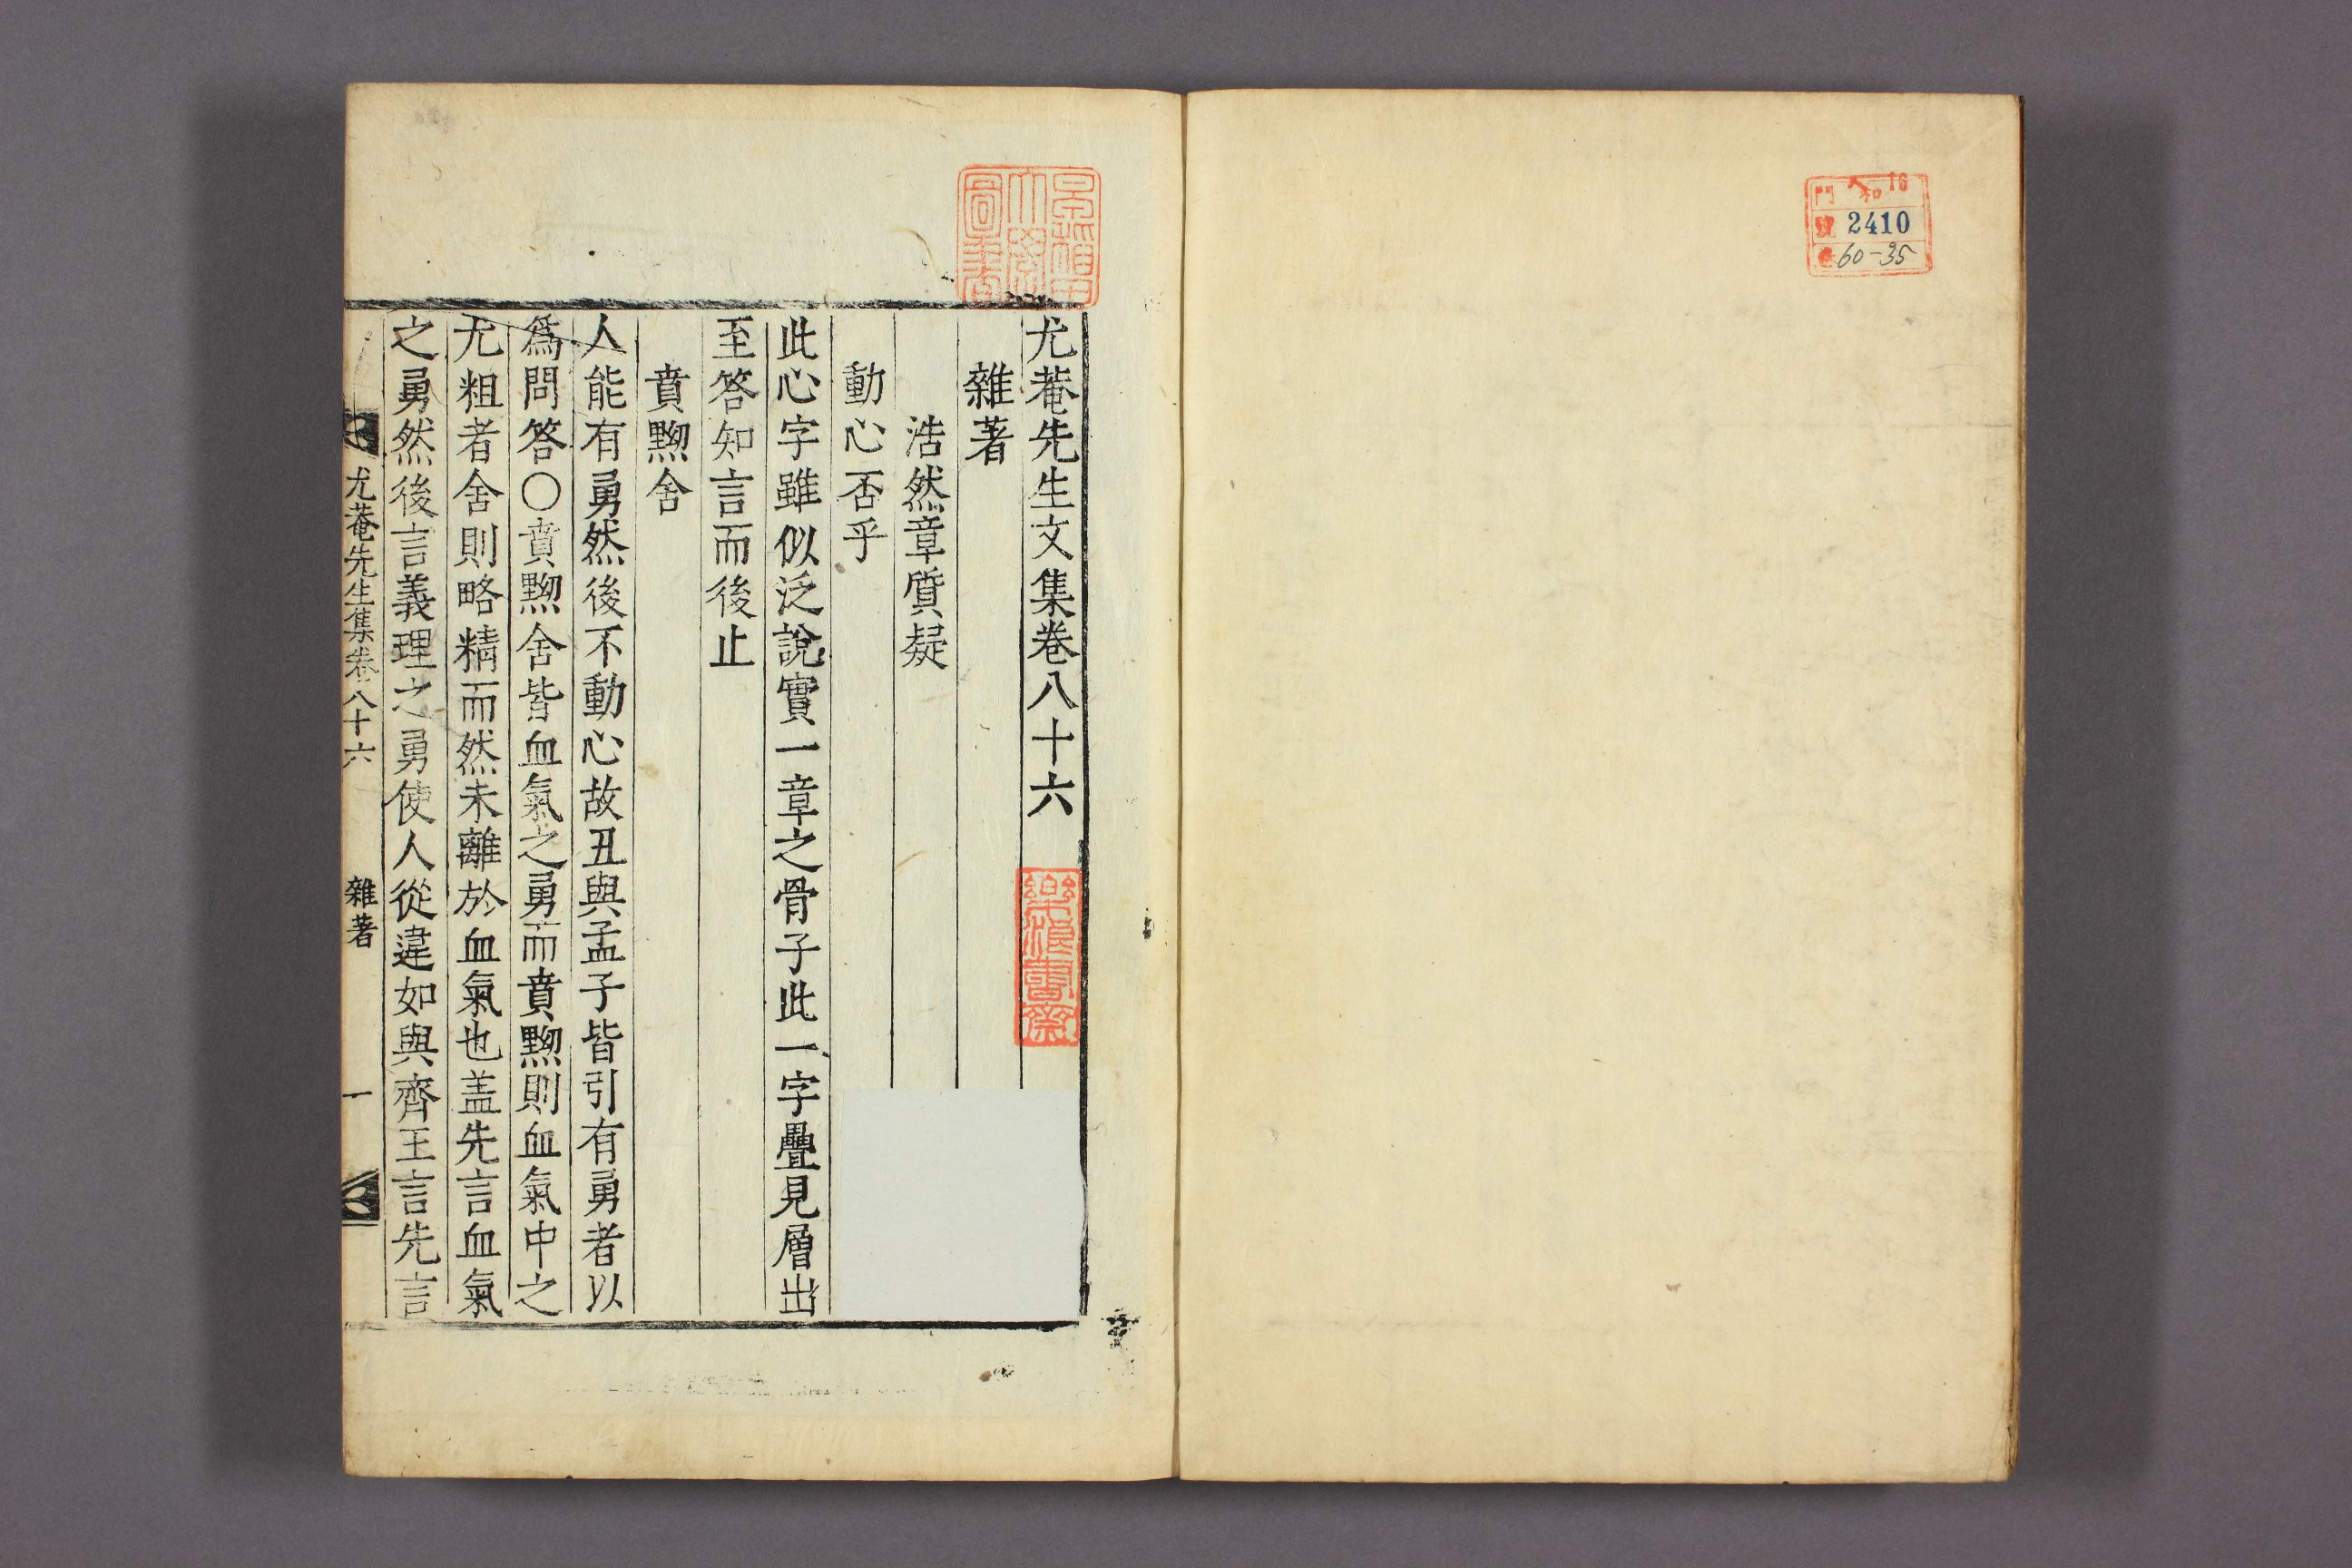 和 16
門
號 2410
60-35
尤菴先生文集卷八十六
雜著
浩然章質疑
動心否乎
此心字雖似泛說實一章之骨子此一字疊見層出
至答知言而後止
賁黝舍
人能有勇然後不動心故丑與孟子皆引有勇者以
爲問答〇賁黝舍皆血氣之勇而賁黝則血氣中之
尤粗者舍則略精而然未離於血氣也盖先言血氣
之勇然後言義理之勇使人從違如與齊王言先言
尤菴先生集卷八十六 雜著 一